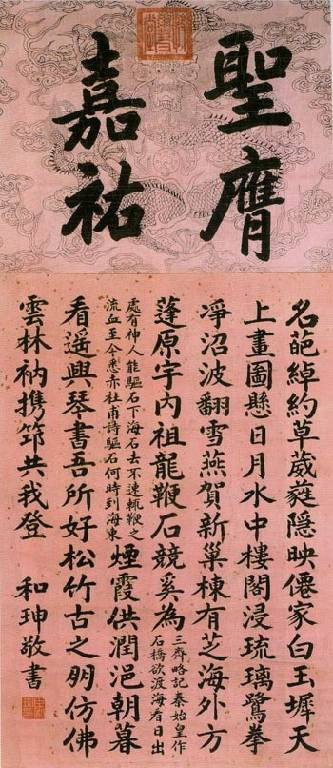 聖膺
嘉祐
名葩綽約草葳蕤隱映僊家白玉墀天
上畫圖懸日月水中樓閣浸琉璃鷺拳
凈沼波翻雪燕賀新巢棟有芝海外方
蓬原宇内祖龍鞭石競奚為
三齊略記秦始皇作
石橋欲渡海看日出
處有神人能驅石下海石去不速輒鞭之
流血至今悉赤杜甫詩驅石何時到海東
煙霞供潤浥朝暮
看遙興琴書吾所好松竹古之朋仿佛
雲林衲携筇共我登
和珅敬書